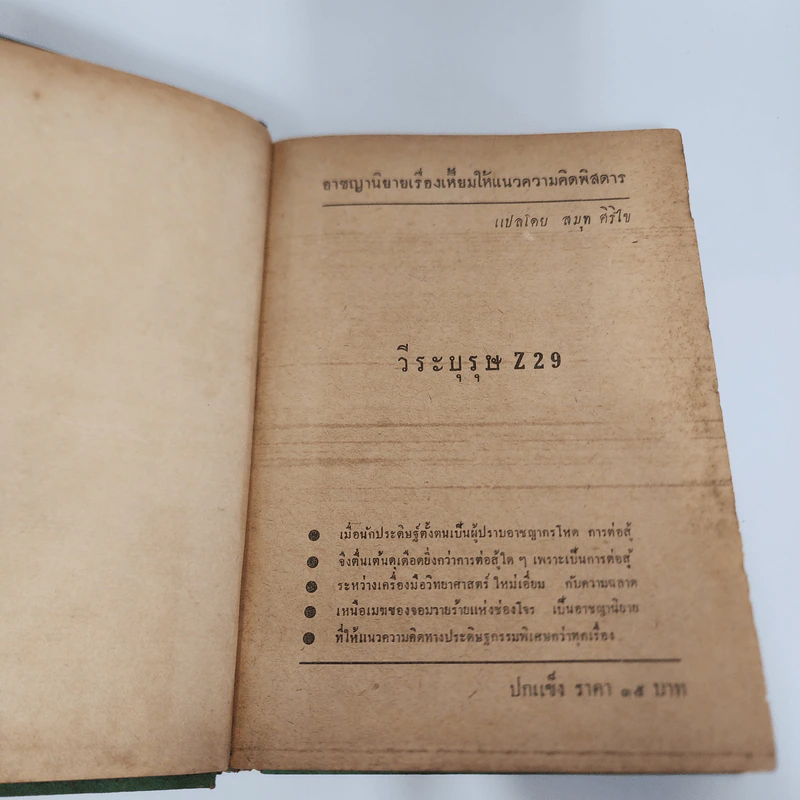 อาชญานิยายเรื่องเหี้ยมให้แนวความคิดพิสดาร
แปลโดย สมุท ศิริไข
วีระบุรุษ Z 29
เมื่อนักประดิษฐ์ตั้งตนเป็นผู้ปราบอาชญากรโหด การต่อสู้
จึงตื่นเต้นดุเดือดยิ่งกว่าการต่อสู้ใด ๆ เพราะเป็นการต่อสู้
ระหว่างเครื่องมือวิทยาศาสตร์ ใหม่เอี่ยม กับความฉลาด
เหนือเมฆของจอมวายร้ายแห่งซ่องโจร เป็นอาชญานิยาย
ที่ให้แนวความคิดทางประดิษฐกรรมพิเศษกว่าทุกเรื่อง
ปกแข็ง ราคา ๑๕ บาท